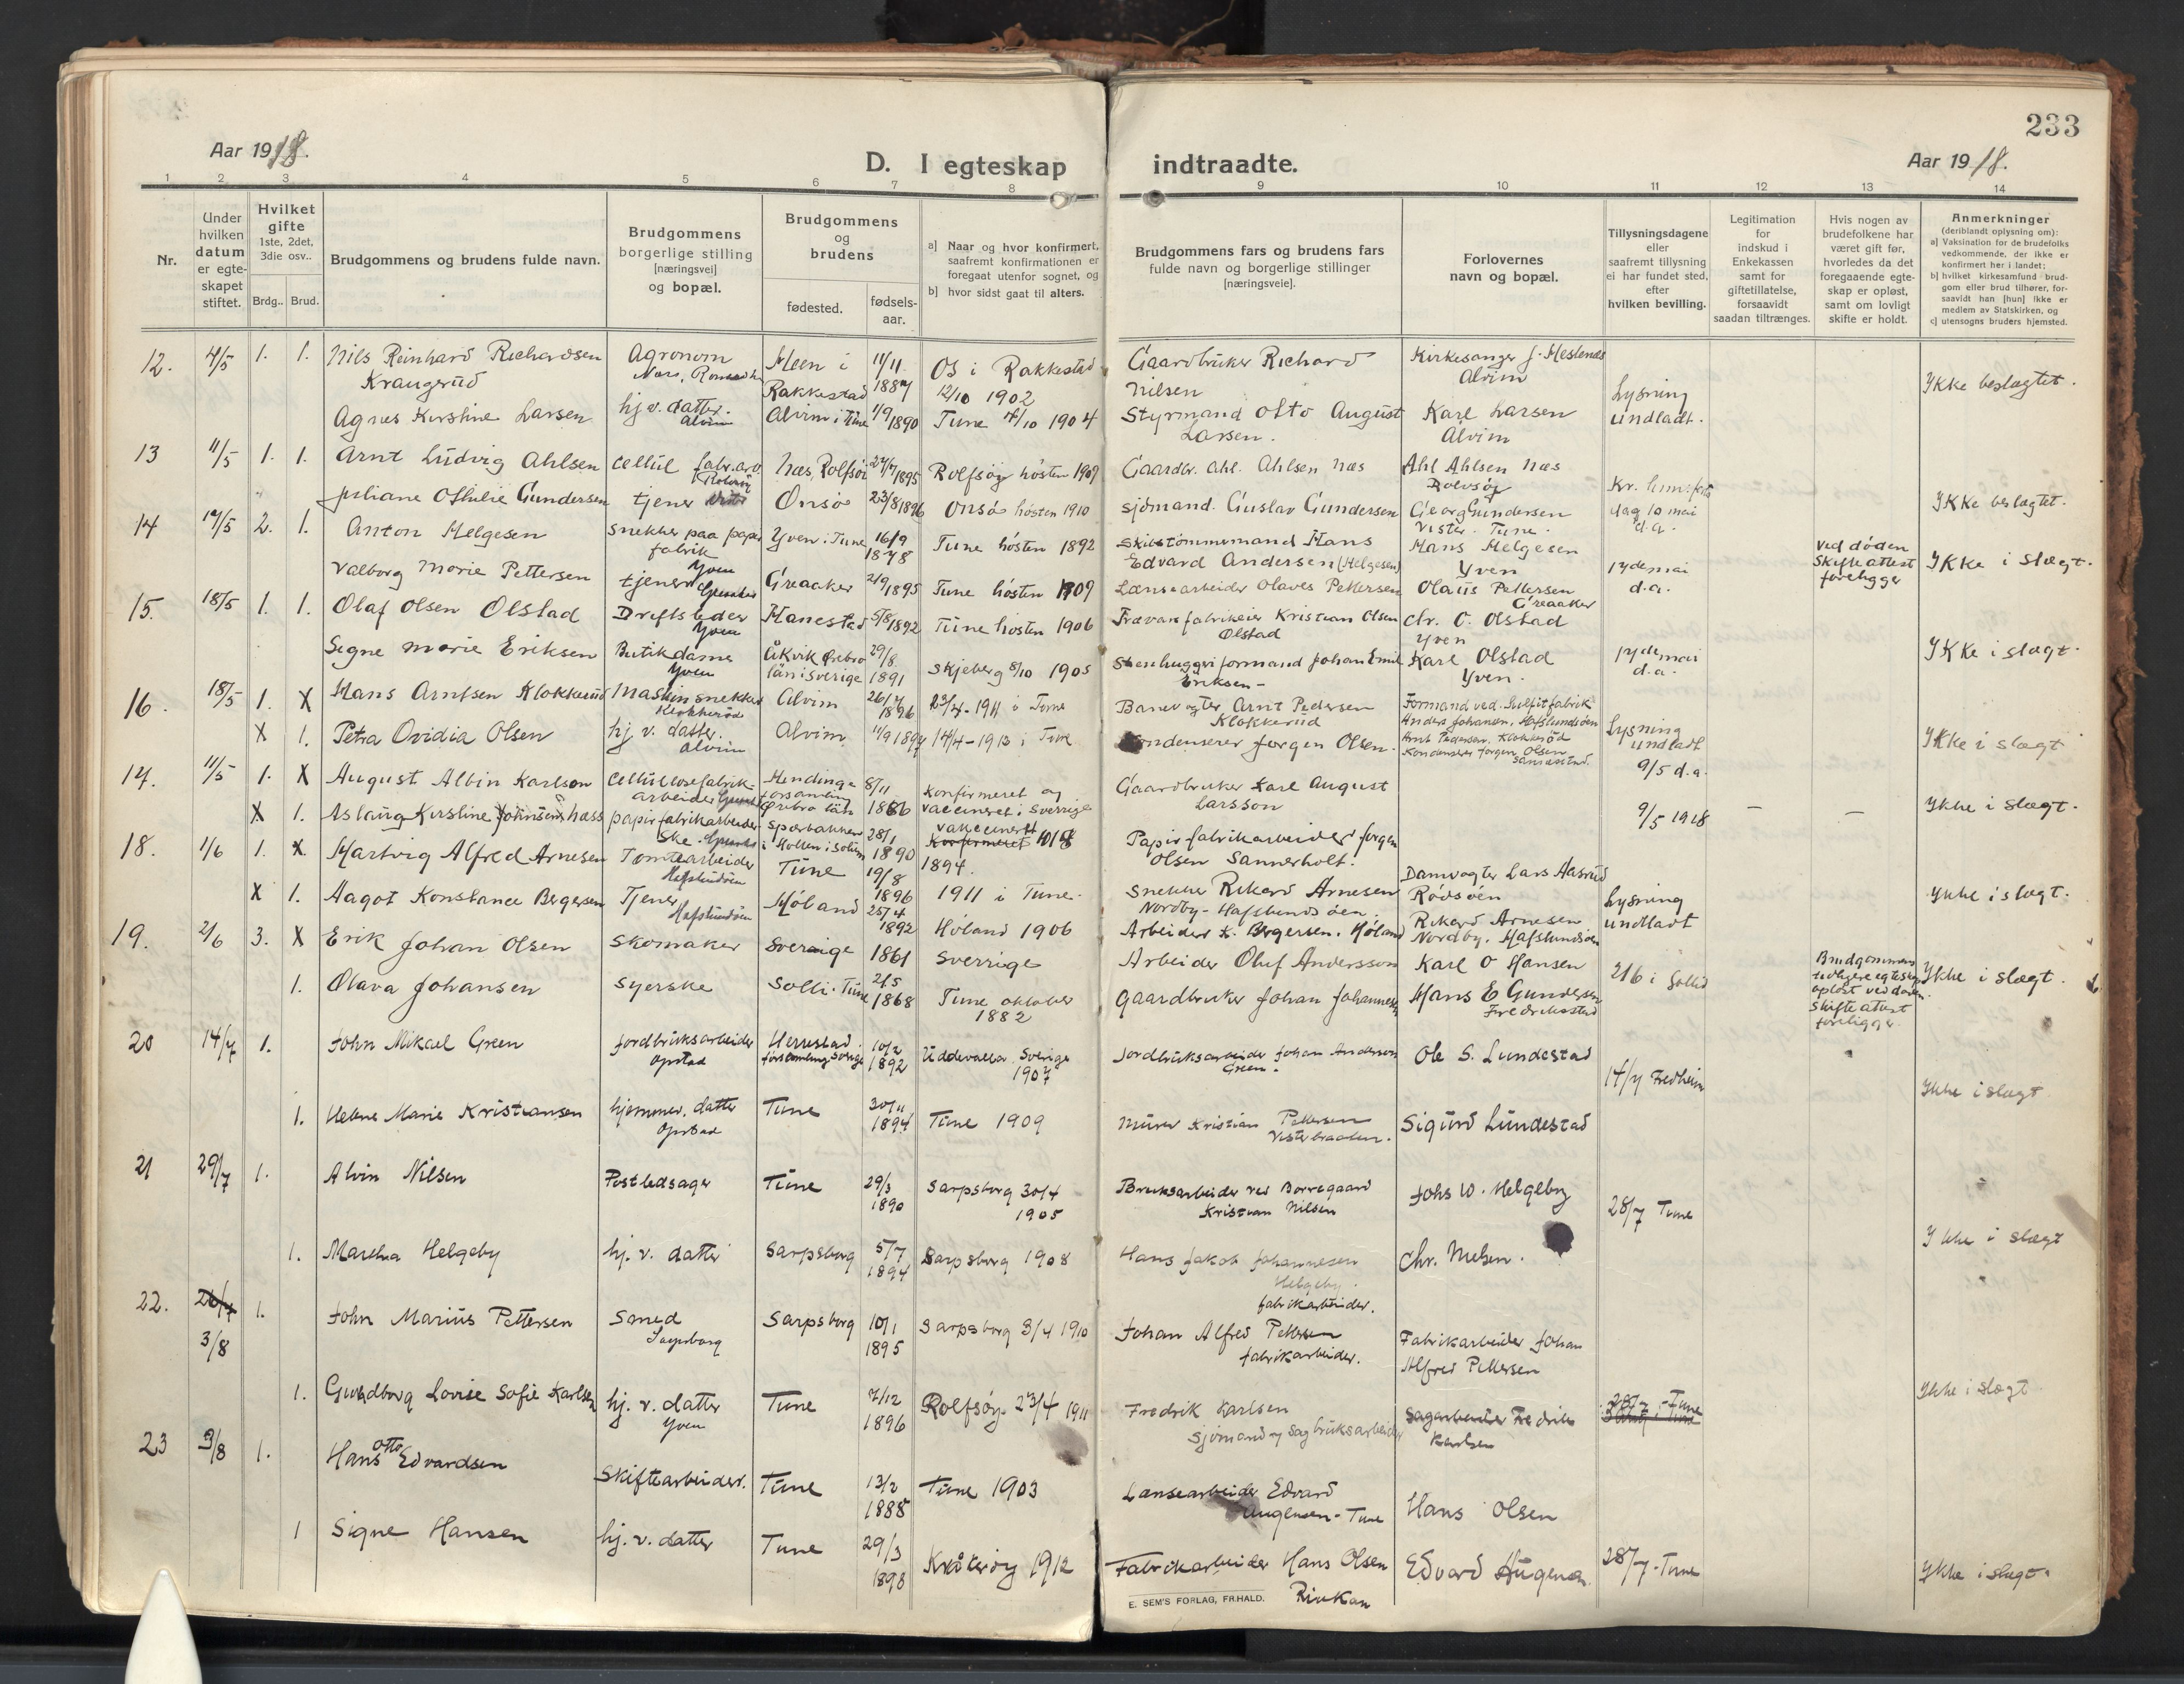 233
Aar 1918.
D. I egteskap indtraadte.
Aar 1918.
1 2 3 4 5 6 7 8 9 10 11 12 13 14
Nr.
Under hvilken datum er egte-skapet stiftet.
Hvilket gifte 1ste, 2det, 3die osv..
Brdg.. Brud.
Brudgommens og brudens fulde navn.
Brudgommens borgerlige stilling [næringsvei] og bopæl.
Brudgommens og brudens
fødested.
fødsels-aar.
a] Naar og hvor konfirmert, saafremt konfirmationen er foregaat utenfor sognet, og
b] hvor sidst gaat til alters.
Brudgommens fars og brudens fars fulde navn og borgerlige stillinger [næringsveie].
Forlovernes navn og bopæl.
Tillysningsdagene eller saafremt tillysning ei har fundet sted, efter hvilken bevilling.
Legitimation for indskud i Enkekassen samt for giftetillatelse, forsaavidt saadan tiltrænges.
Hvis nogen av brudefolkene har været gift før, hvorledes da det foregaaende egte-skap er opløst, samt om lovligt skifte er holdt.
Anmerkninger (deriblandt oplysning om):
a] Vaksination for de brudefolks vedkommende, der ikke er konfirmert her i landet;
b] hvilket kirkesamfund brud-gom eller brud tilhører, for-saavidt han [hun] ikke er medlem av Statskirken, og
c] utensogns bruders hjemsted.
12. 4/5 1. 1. Nils Reinhard Richardsen Kraugerud
Agronom
Rakkestad
11/11 1887
Os i Rakkestad 12/10 1902
Gaardbruker Richard Nilsen
Kirkesanger J. Meslends Alvim
Lysning undladt.
Ikke beslægtet.
Agnes Kirstine Larsen
hj. v. datter. Alvim
Alvim i Tune
1/9 1890
Tune 4/10 1904
Styrmand Otto August Larsen.
Karl Larsen Alvim
13 11/5 1. 1. Arnt Ludvig Ahlsen
Cellul. fabr. arb.
Næs, Rolfsøi
27/7 1895
Rolfsøy høsten 1909
Gaardbr. Ahl. Ahlsen Næs
Ahl Ahlsen Næs Rolvsøy
Kr. himmelfarts dag 10 mai d.a.
Ikke beslægtet.
Juliane Othilie Gundersen
tjener
Onsø
23/8 1896
Onsø høsten 1910
Sjømand. Gustav Gundersen
Georg Gundersen Vister. Tune.
14 17/5 2. 1. Anton Helgesen
Snekker paa papir fabrik Yven
Yven i Tune
16/9 1878
Tune høsten 1892
Skibstømmermand Hans Edvard Andersen (Helgesen)
Hans Helgesen Yven
17de mai d.a.
ved døden Skifteattest foreligger
Ikke i slægt.
Valborg Marie Pettersen
tjener Greaaker
Greaaker
21/9 1895
Tune høsten 1909
Lænsearbeider Olaves Pettersen
Olaus Pettersen Greaaker
15. 18/5 1. 1. Olaf Olsen Olstad
Driftsleder Yven
Hanestad
5/8 1892
Tune høsten 1906
Trævarefabrikeier Kristian Olsen Olstad
Chr. O. Olstad Yven
17de mai d.a.
Ikke i slægt.
Segne Marie Eriksen
Butikdame Yven
Åkvik Ørebro län i Sverige
29/8 1891
Skjeberg 8/10 1905
Stenhuggeriformand Johan Emil Eriksen
Karl Olstad Yven.
16. 18/5 1. X Hans Arntsen Klokkerud
Maskinsnekker Klokkerød
Alvim
26/7 1896
23/4-1911 i Tune
Banevogter Arnt Pedersen Klokkerud
Formand ved Sulfitfabrik Anders Johansen, Hafslundsøen
Arnt Pedersen, Klokkerød
Kondenserer Jørgen Olsen
Lysning undladt
Ikke i slægt
X 1. Petra Ovidia Olsen
hj v. datter. Alvim
Alvim
11/9 1894
14/4-1913 i Tune
Kondenserer Jørgen Olsen.
9/5 d.a.
17. 11/5 1. X August Albin Karlson
Cellullosefabrik-arbeider
Ørebro län
8/11 1886
Konfirmeret og vaccineret i Sverrige
Gaardbruker Karl August Larsson
9/5 1918
Ikke i slægt.
X 1. Aslaug Kirstine Johnsen Næss
papirfabrikarbeider
Sporbakken i Hollen i Solum
28/1 1890
vakcineret 1894.
Papirfabrikarbeider Jørgen Olsen Sannerholt.
18. 1/6 1. X. Hartvig Alfred Arnesen
Tomtearbeider Hafslundsøen
Tune
19/8 1896
1911 i Tune.
Snekker Rikard Arnesen Nordby - Hafslundsøen.
Damvogter Lars Aasrud Rødsøen
Lysning undladt
Ikke i slægt.
X 1. Aagot Konstance Bergersen
Tjener Hafslundsøen
Høland
25/4 1892
Høland 1906
Arbeider K. Bergersen. Høland
Rikard Arnesen Nordby. Hafslundsøen
19. 2/6 3. X Erik Johan Olsen
Skomaker
Sverrige
1861
Sverrige
Arbeider Oluf Andersson
Karl O Hansen
2/6 i Solli
Brudgommens tidligere egteskap opløst ved døden. Skifteattest foreligger
Ikke i slægt.
1. Olava Johansen
Syerske
Solli. Tune
2/5 1868
Tune oktober 1882
Gaardbruker Johan Johannesen
Hans E Gundersen Fredrikstad
20 14/7 1. John Mikael Green
Jordbruksarbeider Opstad
Herrestad forsamling Sverige
10/2 1892
Uddevalla Sverige 1907
Jordbruksarbeider Johan Anderson Green.
Ole S. Lundestad
14/7 Fredheim
Ikke i slægt
1. Helene Marie Kristiansen
hjemmev. datter Opstad
Tune
30/11 1894
Tune 1909
Murer Kristian Pettersen Visterbraaten.
Sigurd Lundestad
21 29/7 1. Alvin Nilsen
Postledsager
Tune
29/3 1890
Sarpsborg 30/4 1905
Bruksarbeider ved Borregaard Kristian Nilsen
Johs W. Helgeby
28/7 Tune
Ikke i slægt
1. Martha Helgeby
hj. v. datter
Sarpsborg
5/7 1894
Sarpsborg 1908
Hans Jakob Johannesen Helgeby. fabrikarbeider.
Chr. Nielsen.
22. 26/7 3/8 1. John Marius Pettersen
Smed Sarpsborg
Sarpsborg
10/1 1895
Sarpsborg 3/4 1910
Johan Alfred Pettersen fabrikarbeider.
Fabrikarbeider Johan Alfred Pettersen
Ikke i slægt
1. Gundborg Lovise Sofie Karlsen
hj. v. datter Yven
Tune
7/12 1896
Rolfsøy 23/4 1911
Fredrik Karlsen Sjømand og Sagbruksarbeider
Sagarbeider Fredrik Karlsen
28/7 - Tune
23 3/8 1. Hans Otto Edvardsen
Skiftearbeider.
Tune
13/2 1888
Tune 1903
Lænsearbeider Edvard Augensen - Tune
Hans Olsen
28/7 - Tune
Ikke i slægt.
1 Signe Hansen
hj. v. datter
Tune
29/3 1898
Kråkerøy 1912
Fabrikarbeider Hans Olsen Rivkan
Edvard Augensen
E. SEM'S FORLAG, FR.HALD.